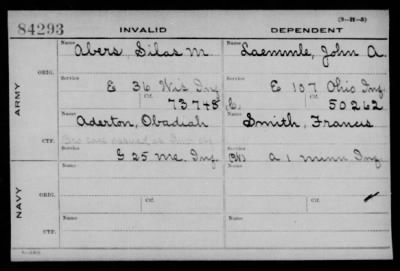 (3-H-5)
84293 INVALID DEPENDENT
Name Abers, Silas M Name Laemmle, John A.
ORIG.
ARMY
Service E 36 Wis Inf Service E 107 Ohio Inf
Ctf. 73748 (C. Ctf. 50262
Name Aderton, Obadiah Name Smith, Francis
CTF.
Service G 25 Me. Inf. Service (W) A 1 Minn Inf
NAVY
Name Name
ORIG.
Service Ctf. Service Ctf.
Name Name
CTF.
Service Service